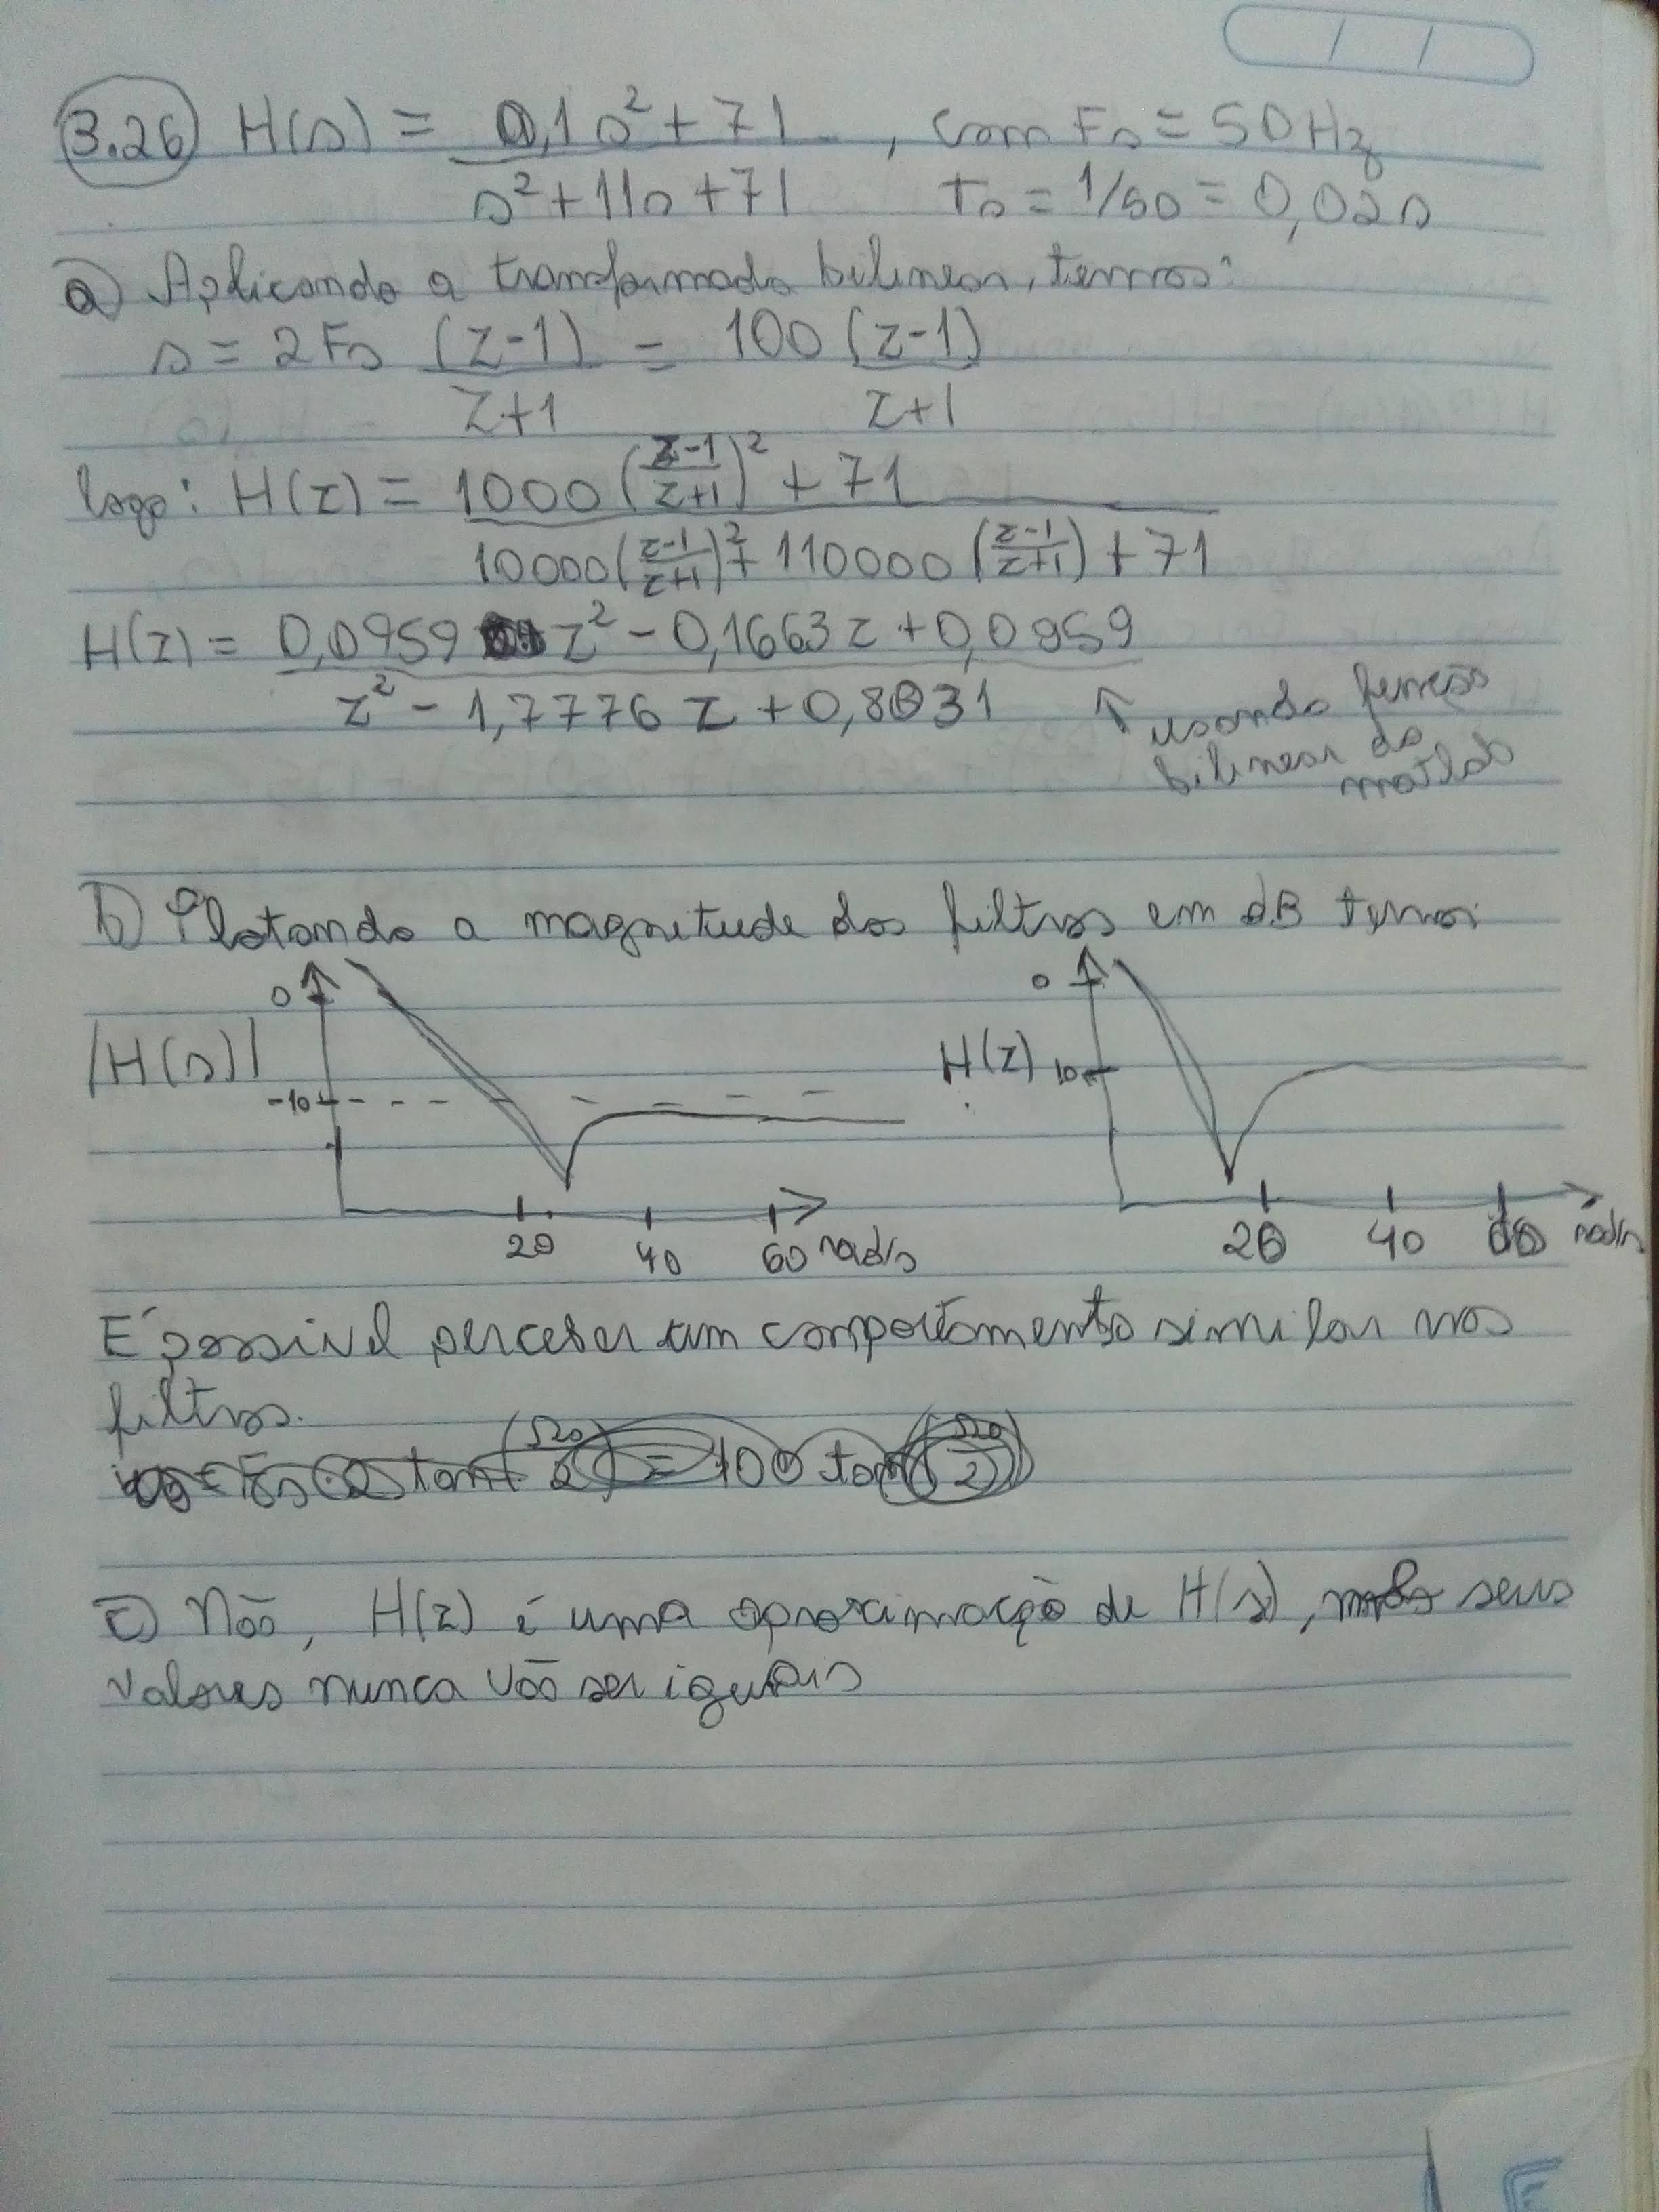 / /
3.26 H(s) = 0,1s² + 71 , com Fs = 50Hz
s² + 11s + 71 Ts = 1/50 = 0,02s
a) Aplicando a transformada bilinear, temos:
s = 2Fs (z-1) = 100 (z-1)
z+1 z+1
logo: H(z) = 1000 (z-1/z+1)² + 71
10000 (z-1/z+1)² + 110000 (z-1/z+1) + 71
H(z) = 0,0959 z² - 0,1663z + 0,0959
z² - 1,7776z + 0,8031 ↑ usando função
bilinear do
matlab
b) Plotando a magnitude dos filtros em dB temos:
0 0
|H(s)| H(z) 10
-10
20 40 60 rad/s 20 40 60 rad/s
É possivel perceber um comportamento similar nos
filtros.
c) Não, H(z) é uma aproximação de H(s), mas seus
valores nunca vão ser iguais